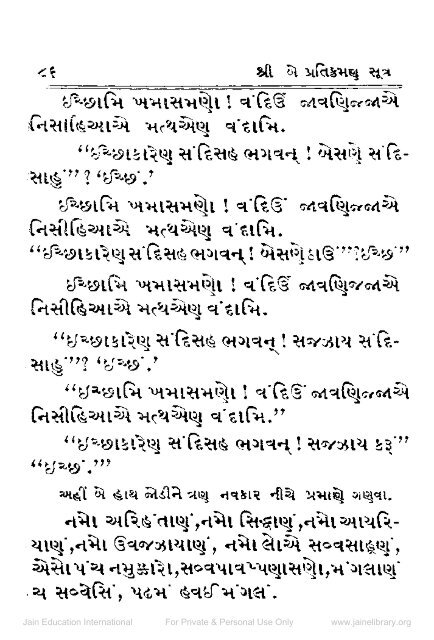 ૮૬ શ્રી બે પ્રતિક્રમણ સૂત્ર
ઇચ્છામિ ખમાસમણો ! વંદિઉં જાવણિજ્જાએ
નિસીહિઆએ મત્થએણ વંદામિ.
“ઇચ્છાકારેણ સંદિસહ ભગવન્ ! બેસણે સંદિ-
સાહું”? ‘ઇચ્છં.’
ઇચ્છામિ ખમાસમણો ! વંદિઉં જાવણિજ્જાએ
નિસીહિઆએ મત્થએણ વંદામિ.
“ઇચ્છાકારેણ સંદિસહ ભગવન્ ! બેસણે ઠાઉં”? ‘ઇચ્છં”
ઇચ્છામિ ખમાસમણો ! વંદિઉં જાવણિજ્જાએ
નિસીહિઆએ મત્થએણ વંદામિ.
“ઇચ્છાકારેણ સંદિસહ ભગવન્ ! સજ્ઝાય સંદિ-
સાહું”? ‘ઇચ્છં.’
“ઇચ્છામિ ખમાસમણો ! વંદિઉં જાવણિજ્જાએ
નિસીહિઆએ મત્થએણ વંદામિ.”
“ઇચ્છાકારેણ સંદિસહ ભગવન્ ! સજ્ઝાય કરૂં”
“ઇચ્છં.”
અહીં બે હાથ જોડીને ત્રણ નવકાર નીચે પ્રમાણે ગણવા.
નમો અરિહંતાણં,નમો સિદ્ધાણં,નમો આયરિ-
યાણં,નમો ઉવજઝાયાણં, નમો લોએ સવ્વસાહૂણં,
એસો પંચ નમુક્કારો,સવ્વપાવપ્પણાસણો,મંગલાણં
ચ સવ્વેસિં, પઢમં હવઈ મંગલં.
Jain Education International For Private & Personal Use Only www.jainelibrary.org